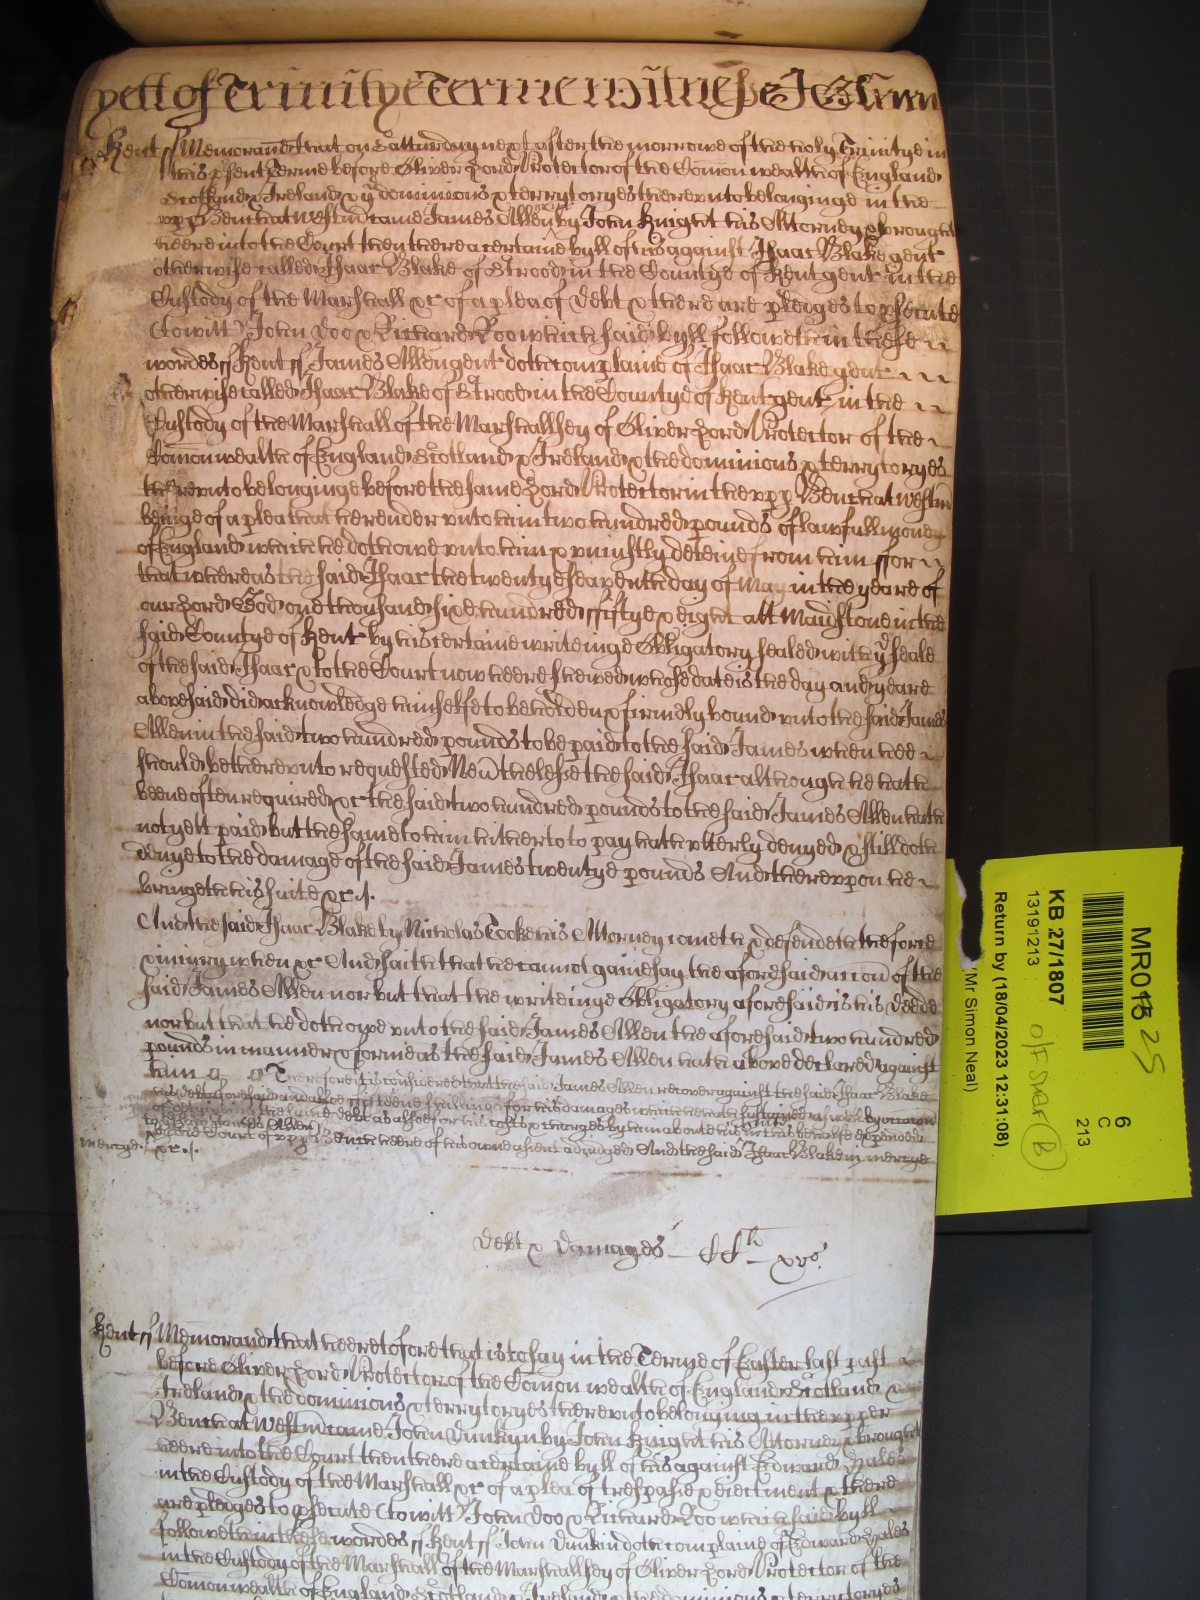 yett of Trinitye Terme witnes
Kent ss Memorand that on Satturday next after the morrowe of the holy Trinitye in
this psent Terme before Oliver Lord Protector of the Comonwealth of England
Scotland & Ireland & ye dominions & terrytoryes thereunto belonginge in the
upp Bench at Westm came James Allen gent by John Knight his Attorney & brought
heere into the Court then there a certaine byll of his against Isaac Blake gent
otherwise called Isaac Blake of Strood in the Countye of Kent gent in the
Custody of the Marshall &c of a plea of Debt & there are pledges to psecute
(to witt) John Doo & Richard Roo which said byll followeth in these
wordes ss Kent ss James Allen gent doth complaine of Isaac Blake gent
otherwise called Isaac Blake of Strood in the Countye of Kent gent in the
Custody of the Marshall of the Marshallsey of Oliver Lord Protector of the
Comonwealth of England Scotland & Ireland & the dominions & terrytoryes
thereunto belonginge before the same Lord Protector in the upp Bench at Westm
beinge of a plea that he render unto him two hundred pounds of lawfull money
of England which he doth owe unto him & uniustly deteine from him ffor
that whereas the said Isaac the twentye seaventh day of May in the yeare of
our Lord God one thousand sixe hundred ffiftye & eight att Maidstone in the
said Countye of Kent by his certaine writeinge Obligatory sealed with ye seale
of the said Isaac & to the Court now heere shewed whose date is the day and yeare
abovesaid did acknowledge himselfe to be holden & firmely bound unto the said James
Allen in the said two hundred pounds to be paid to the said James when hee
should be thereunto requested Nevtheless the said Isaac although he hath
beene often required &c the said two hundred pounds to the said James Allen hath
not yett paid but the same to him hitherto to pay hath utterly denyed & still doth
denye to the damage of the said James twentye pounds And thereupon he
bringeth his suite &c.
And the said Isaac Blake by Nicholas Tooke his Attorney cometh & defendeth the force
& iniury when &c And saith that he cannot gainesay the aforesaid accion of the
said James Allen nor but that the writeinge Obligatory aforesaid is his deede
nor but that he doth owe unto the said James Allen the aforesaid two hundred
pounds in manner & forme as the said James Allen hath above declared against
him Therefore it is considered that the said James Allen recover against the said Isaac Blake
his debt aforesaid and alsoe fifteene shillings for his damages which he hath sustained aswell by occasion
of detaining the same debt as alsoe for his costs & charges by him about his suite in this behalfe expended
to the said James Allen
by the Court of upp Bench heere of his owne assent adiudged And the said Isaac Blake in mercye
mercye &c.
Debt & Damages CCli xvs
Kent ss Memorand that heeretofore that is to say in the Terme of Easter last past
before Oliver Lord Protector of the Comonwealth of England Scotland &
Ireland & the dominions & terrytoryes thereunto belonging in the upper
Bench at Westm came John Dunkyn by John Knight his Attorney & brought
heere into the Court then there a certaine byll of his against Edward Hales
in the Custody of the Marshall &c of a plea of trespasse & eiectment & there
are pledges to psecute (to witt) John Doo & Richard Roo which said byll
followeth in these wordes ss Kent ss John Dunkin doth complaine of Edward Hales
in the Custody of the Marshall of the Marshallsey of Oliver Lord Protector of the
Comonwealth of England Scotland & Ireland & the dominions & terrytoryes
MR018
25
6
C
213
KB 27/1807
13191213
O/Fisher (B)
Return by (18/04/2023 12:31:08)
(Mr Simon Neal)